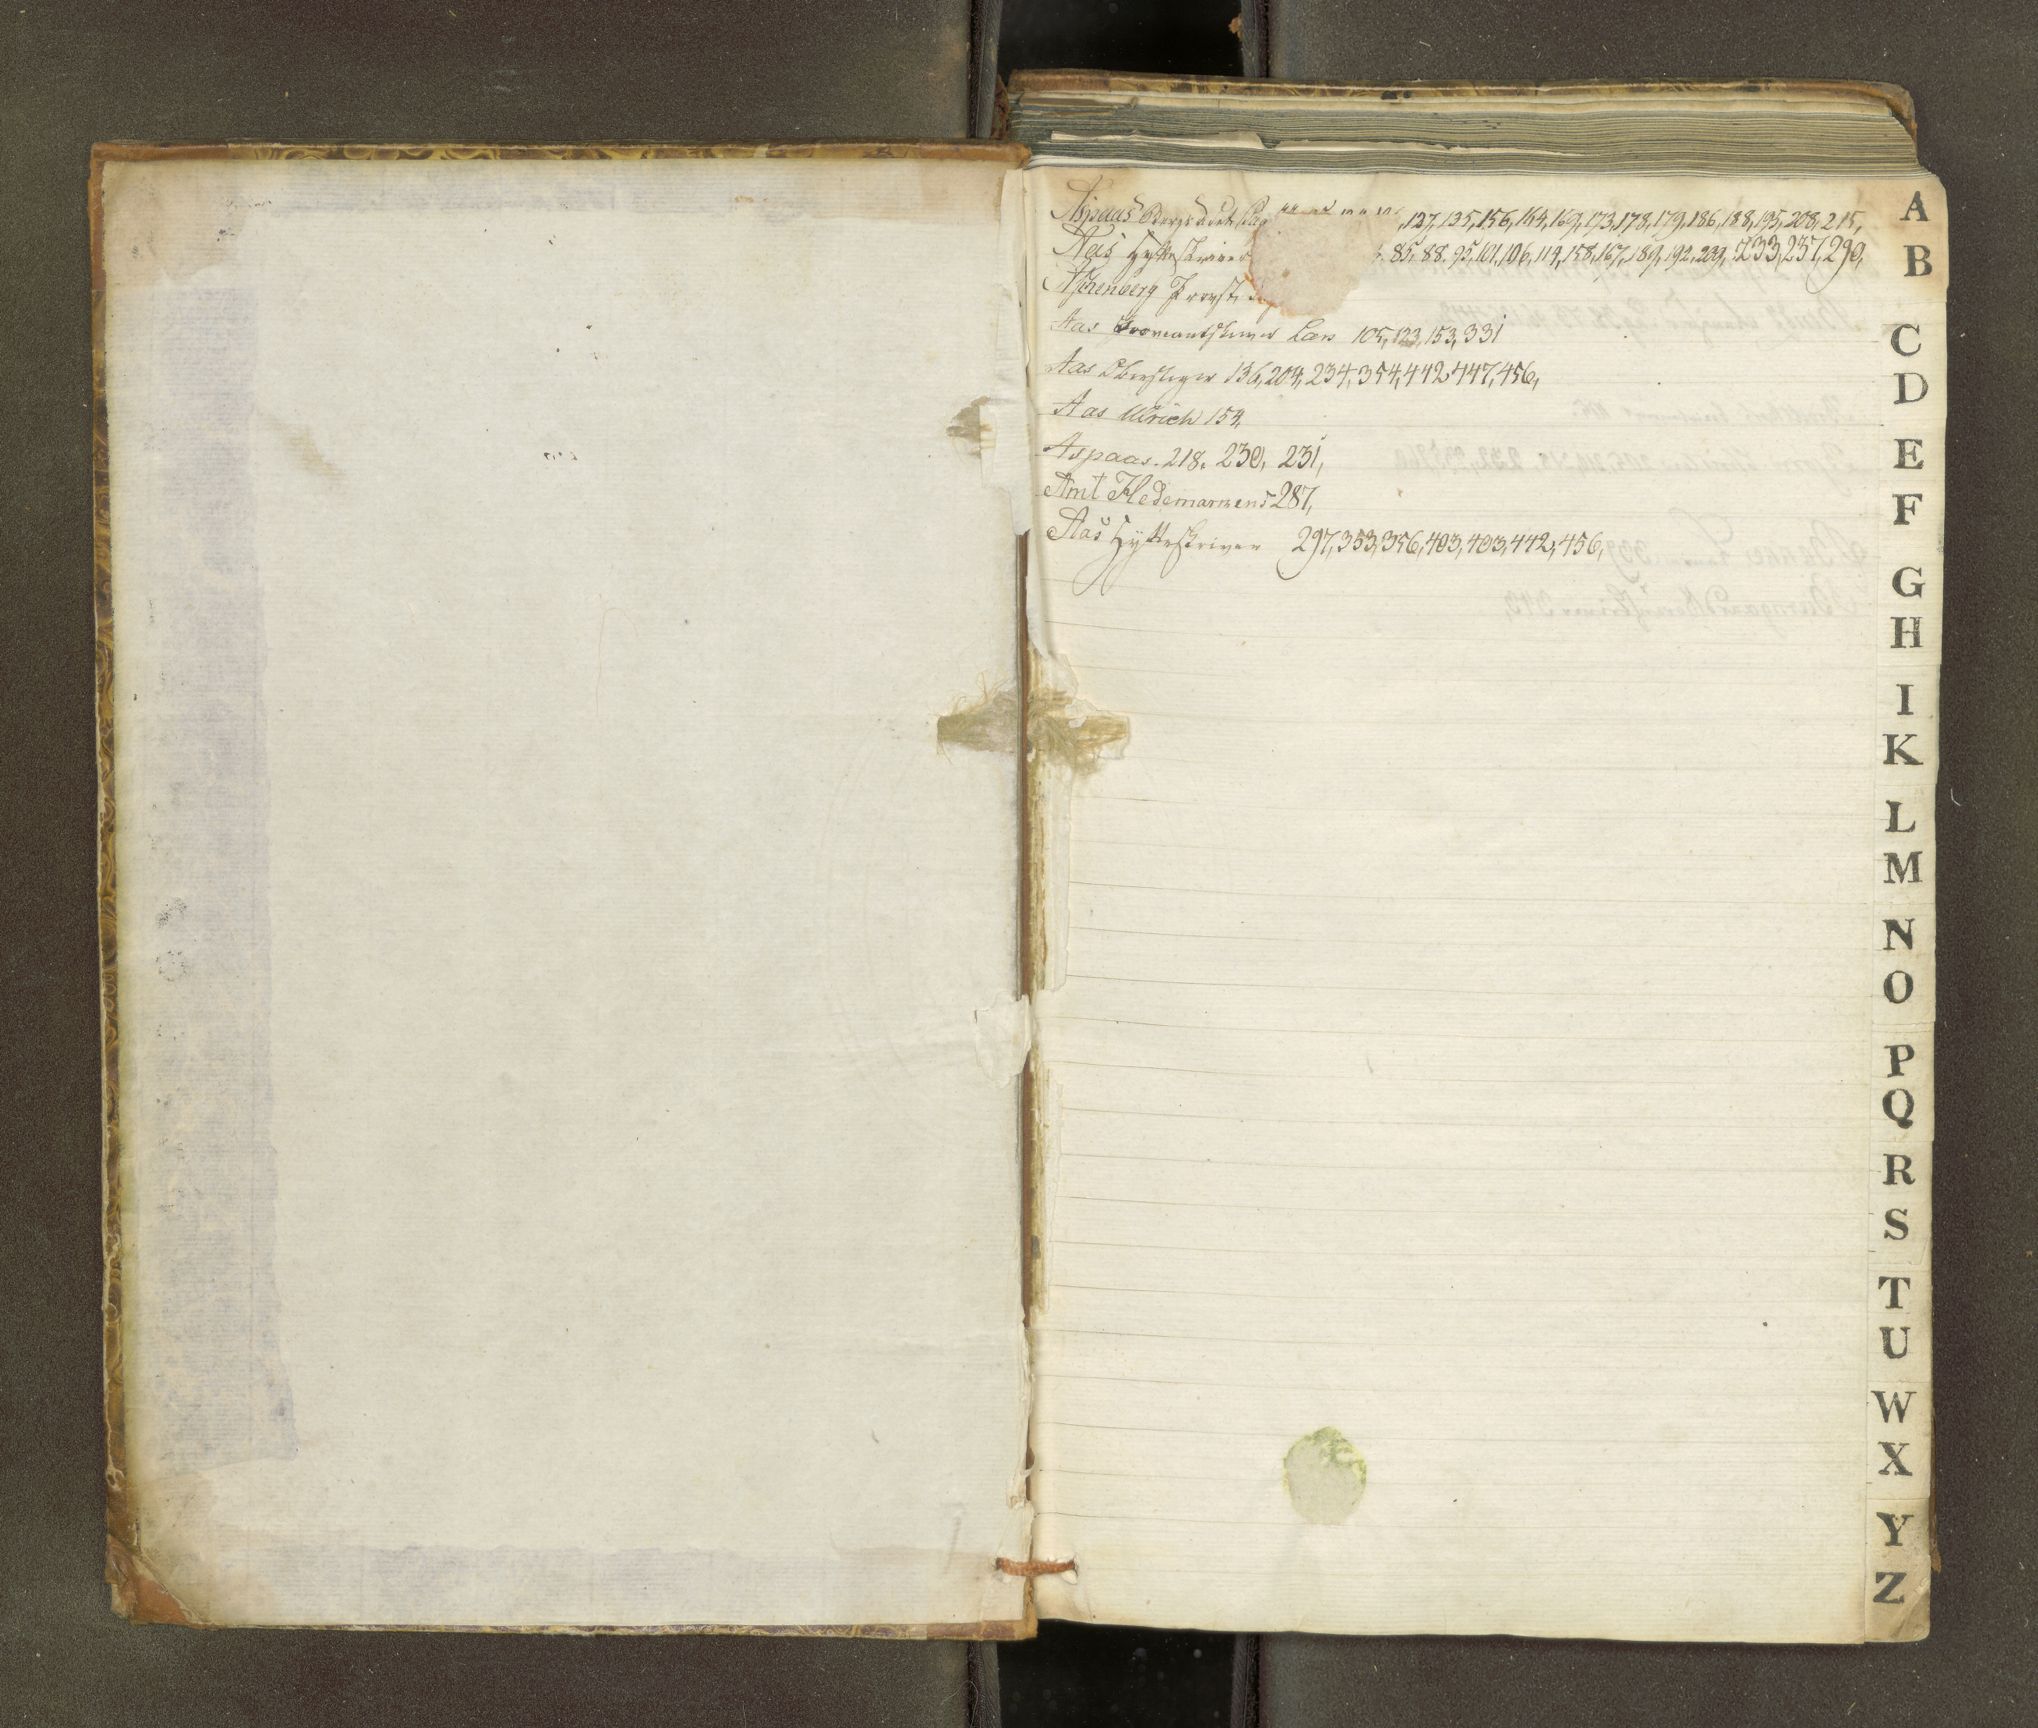 Aspaas ,127,135,156,164,169,173,178,179,186,188,195,208,215,
Aas Hytteskriver 85,88.95,101,106,114,158,167,189,192,209,233,237,290,
Aschenberg Provst
Aas Proviantskriver Lars 105,123,153,331
Aas Oberstiger 136,204,234,354,442,447,456,
Aas Ulrich 154,
Aspaas. 218. 230, 231,
Amt Hedemarkens 287,
Aas Hytteskriver 297,353,356,403,403,442,456,
A
B
C
D
E
F
G
H
I
K
L
M
N
O
P
Q
R
S
T
U
W
X
Y
Z